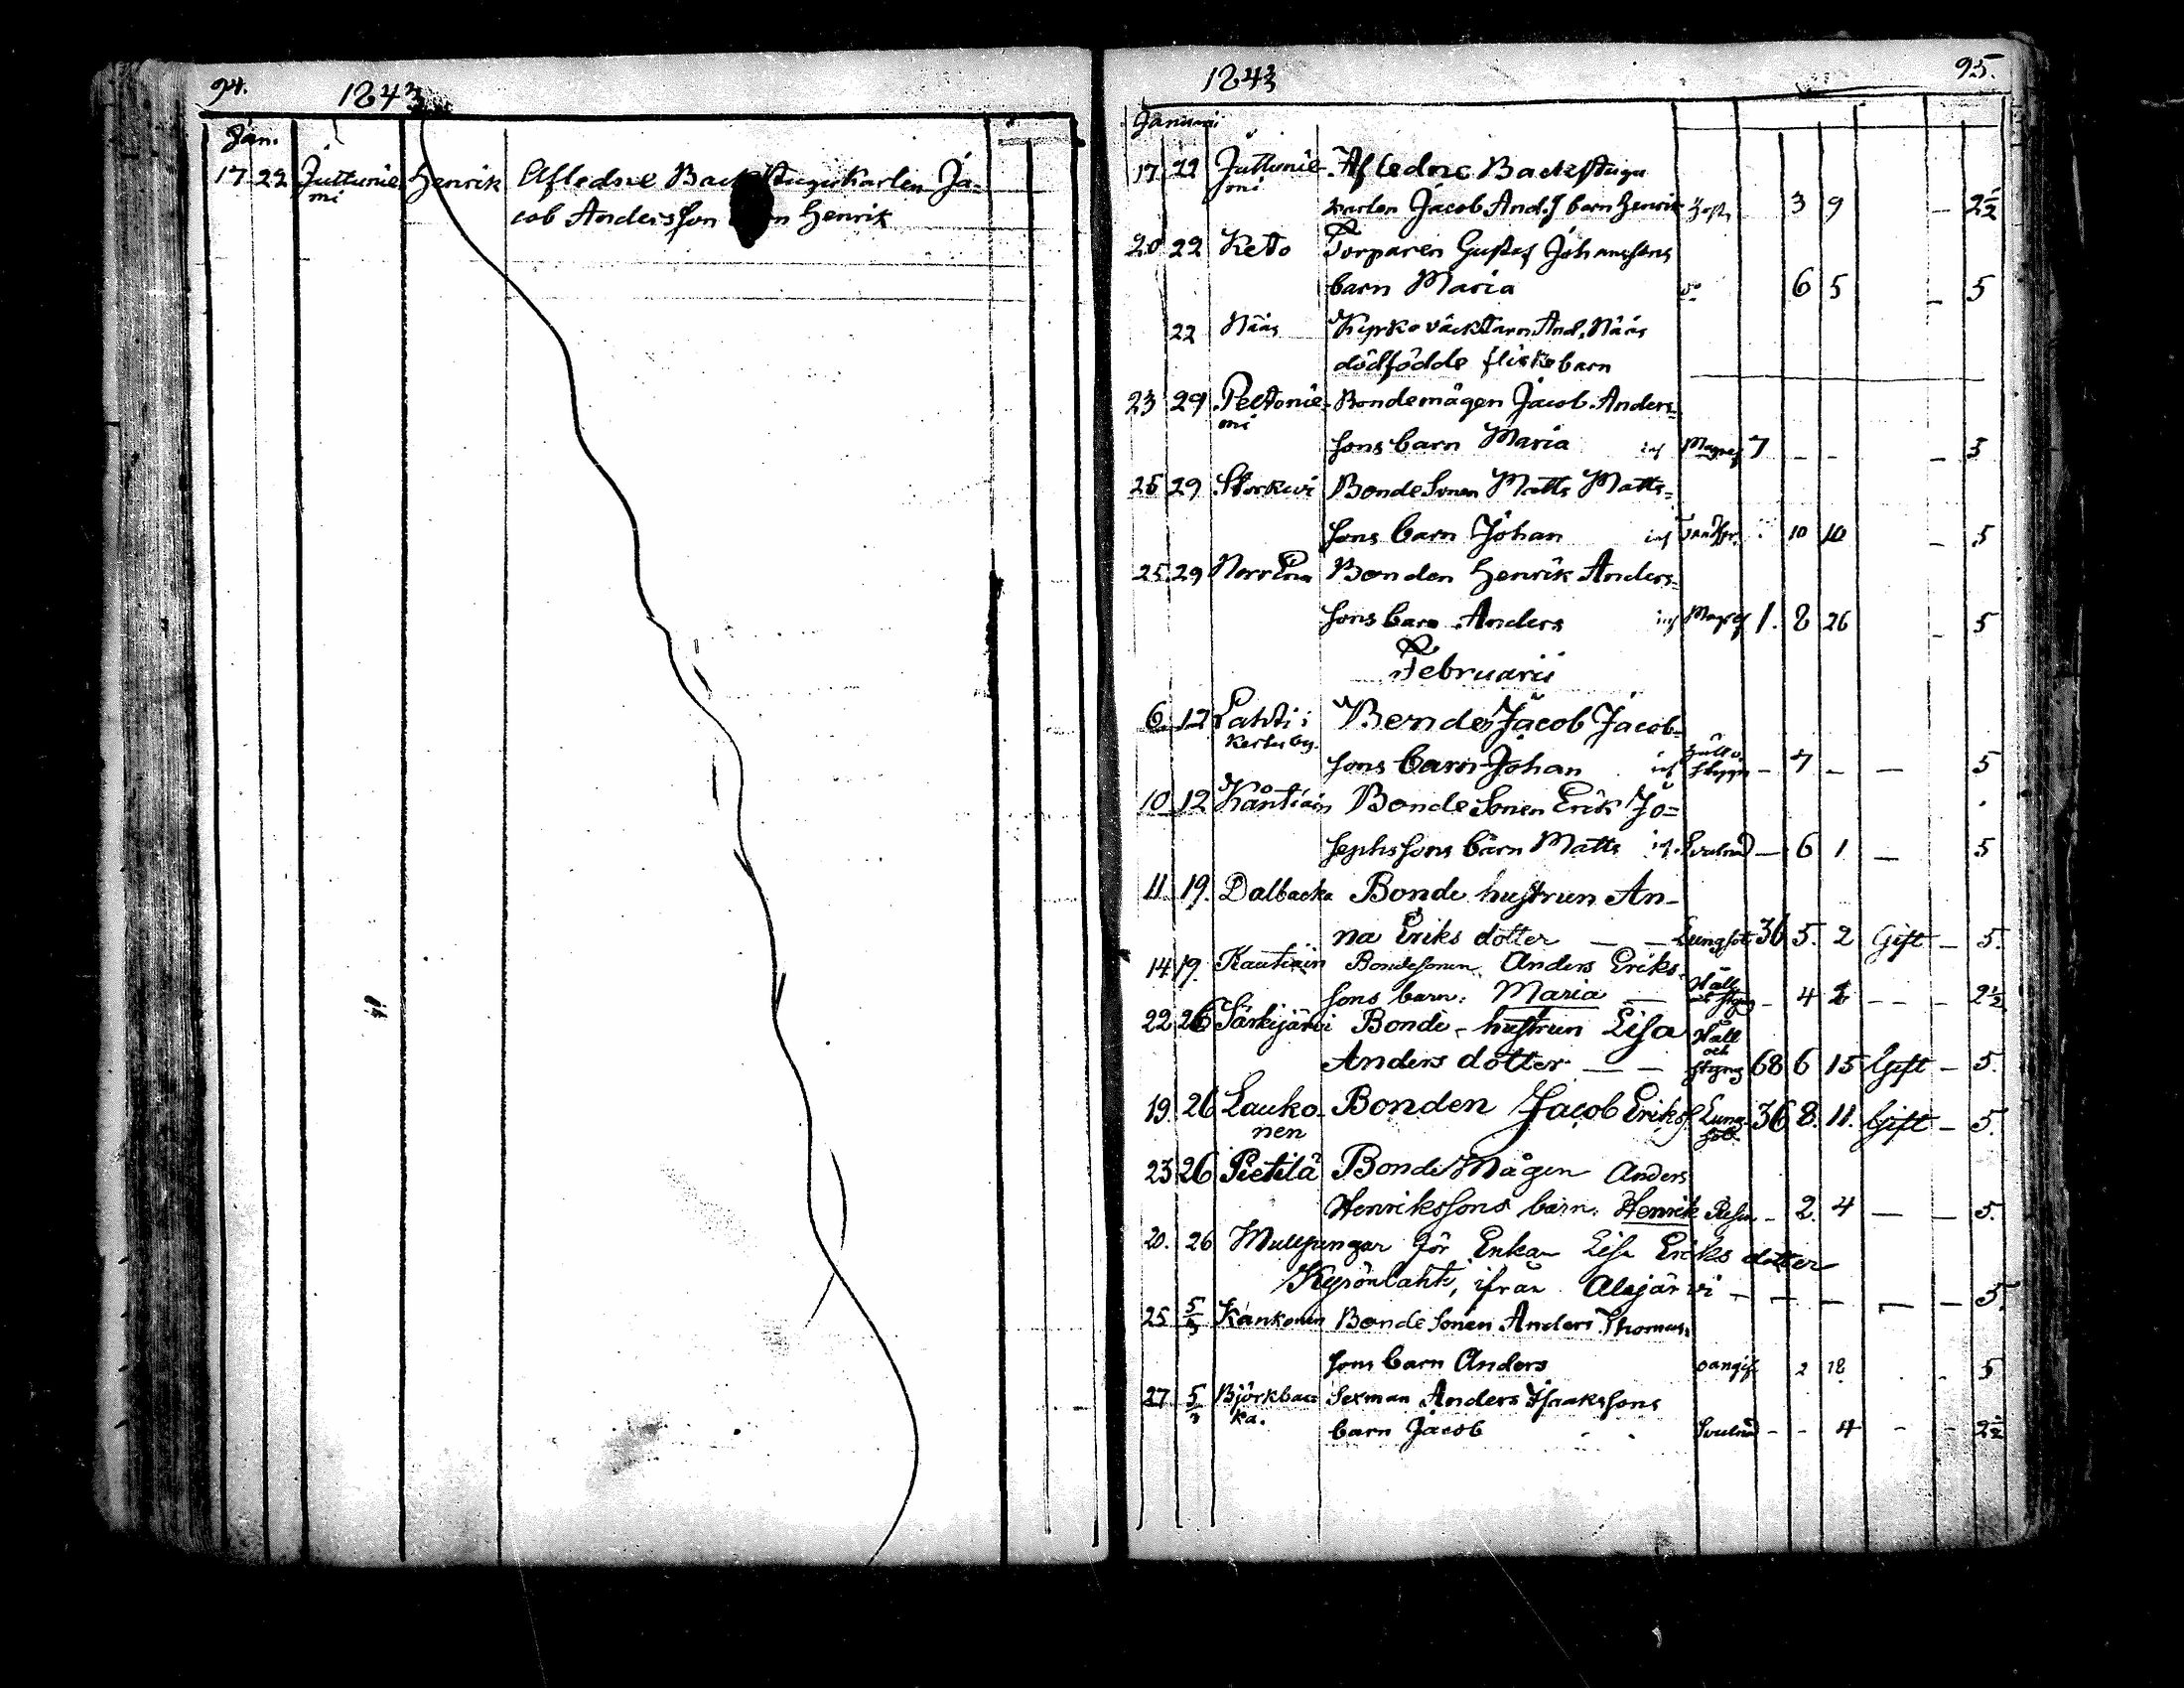 94.
1843
Jan.
17 22 Juttunie Henrik Afledne Backstugukarlen Ja=
mi cob Andersson barn Henrik
1843
95.
Januari
17 22 Juttunie Afledne Backstugu
mi karlen Jacob And.s barn Henrik 3 9 - 2½
20 22 Keto Torparen Gustaf Johanssons
barn Maria do 6 5 - 5
22 Nääs Kyrkoväcktarn And. Nääs
dödfödde flickebarn
23 29 Peltonie Bondemågen Jacob Anders=
mi sons barn Maria 7 - - - 5
25 29 Storkivi Bonde Sonen Matts Matts=
sons barn Johan 10 10 - 5
25 29 Norrena Bonden Henrik Anders=
sons barn Anders 1. 8 26 - 5
Februarii
6 12 Lahti i Bonde Jacob Jacob=
Kortesby sons barn Johan - 7 - - 5
10 12 Kåntiäin Bonde Sonen Erik Jo=
sephssons barn Matts - 6 1 - 5
11. 19. Dalbacka Bonde hustrun An-
na Eriks dotter - - Lungsot 36 5. 2 Gift - 5.
14 19. Kautiäin Bondesonen Anders Eriks-
sons barn: Maria - Håll och styng - 4 2 - - - 2½
22 26 Särkijärvi Bonde-hustrun Lisa
Anders dotter - - Håll och styng 68 6 15 Gift - 5.
19. 26 Lauko- Bonden Jacob Eriks Lung- 36 8. 11. Gift - 5.
nen sot
23 26 Pietilä Bonde Mågen Anders
Henrikssons barn: Henrik - 2. 4 - - 5.
20. 26 Mullpengar för Enkan Lisa Eriks dotter
Kyrönlahti, ifrån Alajärvi - - - - - 5.
25 5/3 Kankonen Bonde Sonen Anders Thomas
sons barn Anders oangif. 2 18 - 5
27 5/3 Björkbac Sexman Anders Isaakssons
ka. barn Jacob - - 4 - - 2½